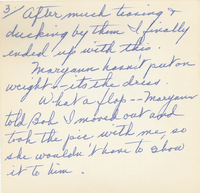 3/ After much teasing &
ducking by them I finally
ended up with this.
Maryann hasn't put on
weight -- its the dress.
What a flop -- Maryann
told Bob I moved out and
took the pic with me, so
she wouldn't have to show
it to him.